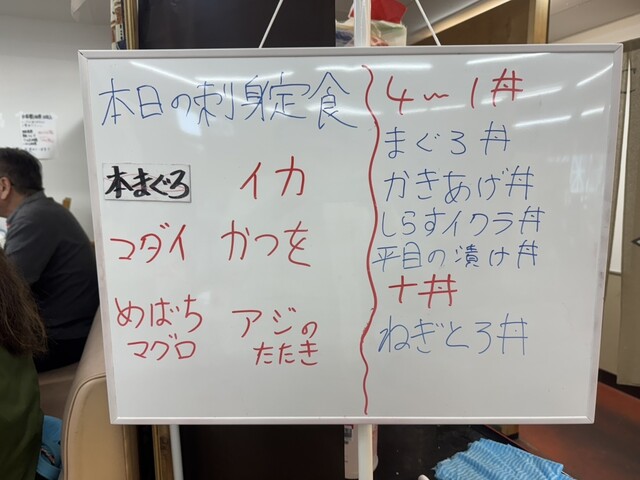 本日の刺身定食
本まぐろ
イカ
コダイ
かつを
めばち
マグロ
アジの
たたき
4〜1丼
まぐろ丼
かきあげ丼
しらすイクラ丼
平目の漬け丼
十丼
ねぎとろ丼